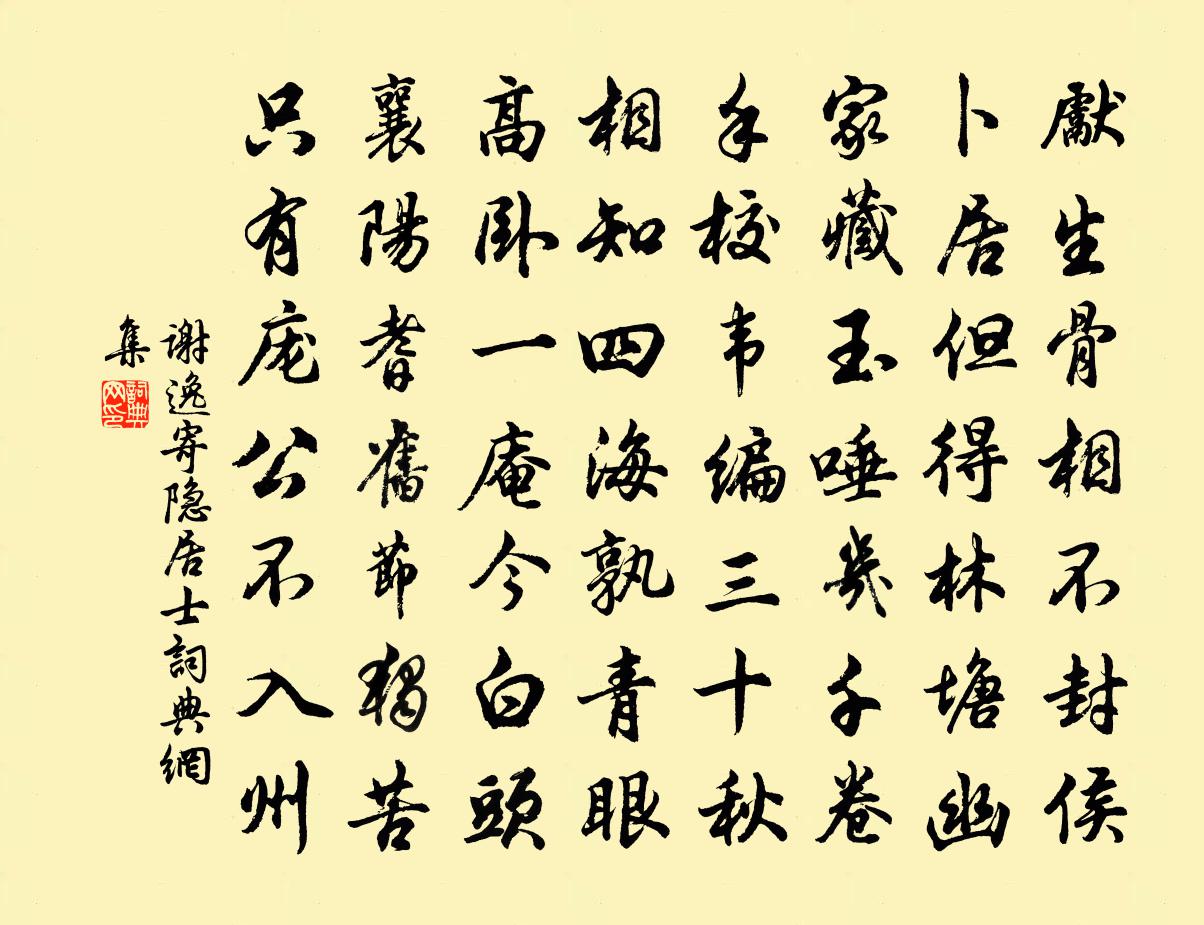 獻生骨相不封侯
卜居但得林塘幽
家藏玉唾幾千卷
手校韦编三十秋
相知四海孰青眼
高卧一庵今白頭
襄陽耆舊節獨苦
只有庞公不入州
谢逸寄隐居士詞典網
集
詞典網印